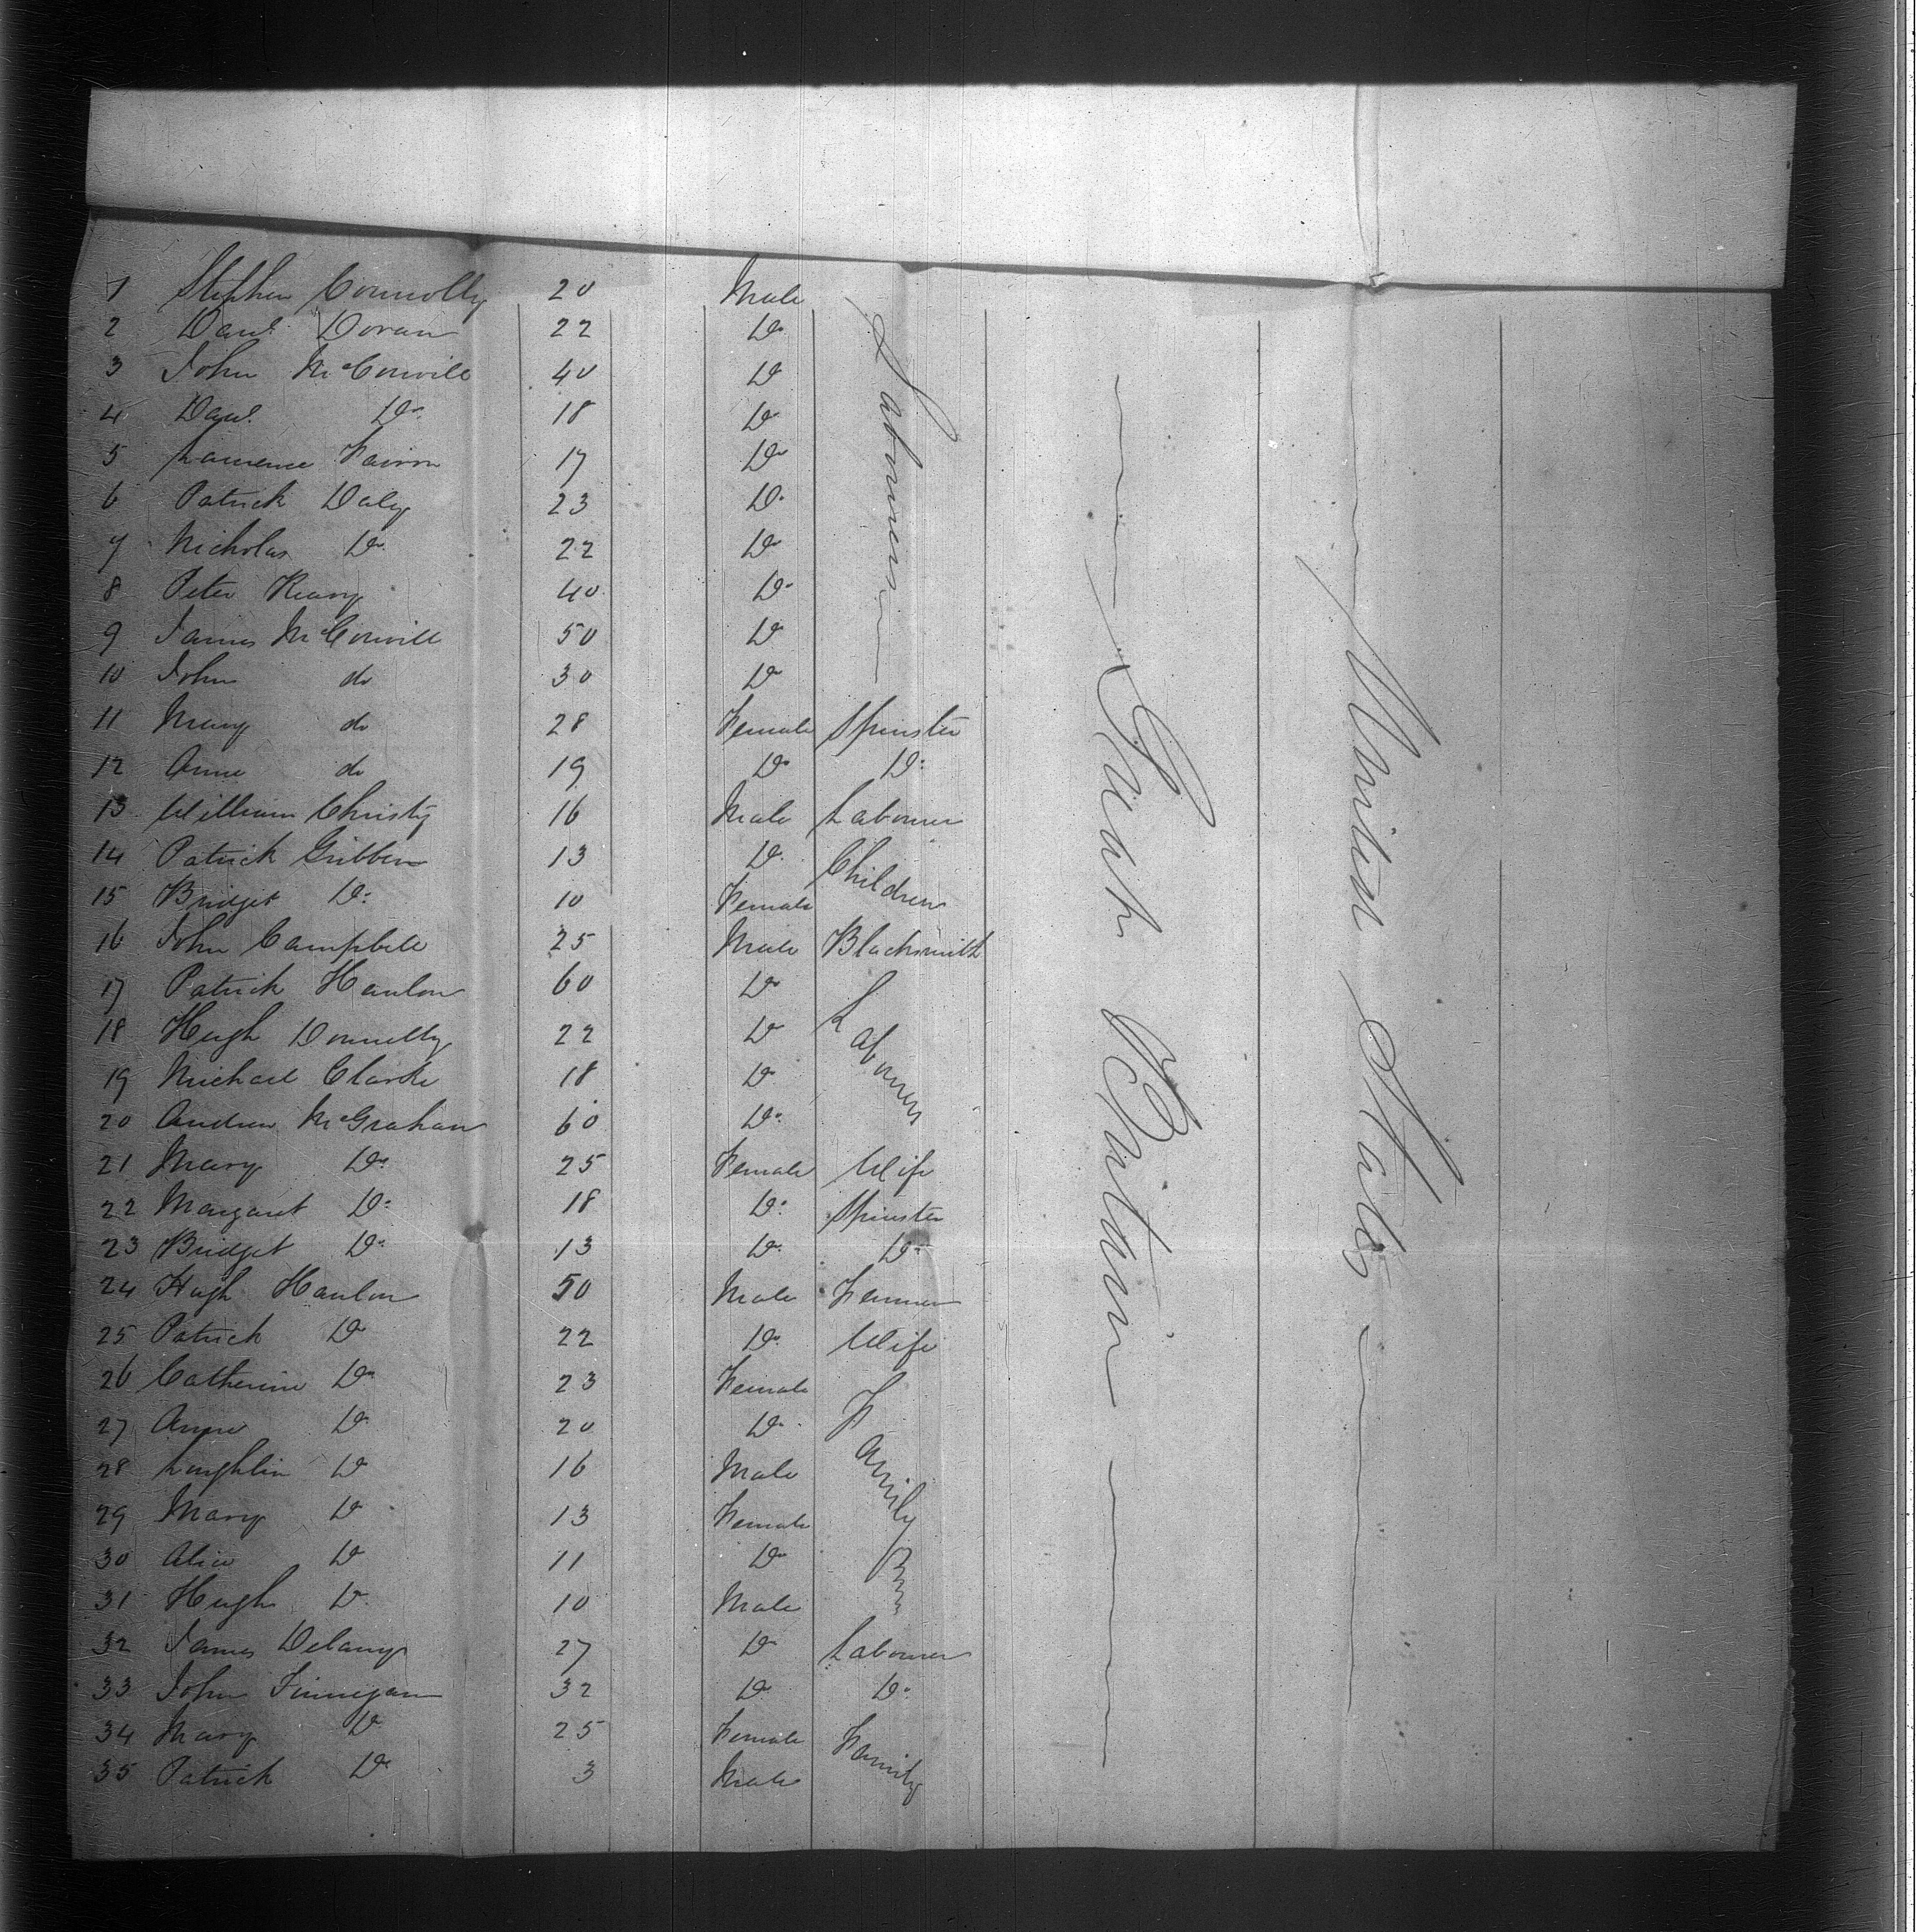 1 Stephen Connolly 20 Male
2 Danl. Doran 22 Do
3 John McConvill 40 Do
4 Danl. Do 18 Do
5 Laurence 17 Do
6 Patrick Daly 23 Do
7 Nicholas Do 22 Do
8 Peter 40 Do
9 James McConvill 50 Do
10 John do 30 Do
Labourers
11 Mary do 28 Female Spinster
12 Anne do 19 Do Do
13 William Christy 16 Male Labourer
14 Patrick Gribben 13 Do
15 Bridget Do 10 Female
Children
16 John Campbell 25 Male Blacksmith
17 Patrick Hanlon 60 Do
18 Hugh Donnelly 22 Do
19 Michael Clarke 18 Do
20 Andrew McGrahan 60 Do
Labourers
21 Mary Do 25 Female Wife
22 Margaret Do 18 Do Spinster
23 Bridget Do 13 Do Do
24 Hugh Hanlon 50 Male Farmer
25 Patrick Do 22 Do Wife
26 Catherine Do 23 Female
27 Anne Do 20 Do
28 Loughlin Do 16 Male
29 Mary Do 13 Female
30 Alice Do 11 Do
31 Hugh Do 10 Male
Family
32 James Delany 27 Do Labourer
33 John Finnegan 32 Do Do
34 Mary Do 25 Female
35 Patrick Do 3 Male
Family
Great Britain
United States